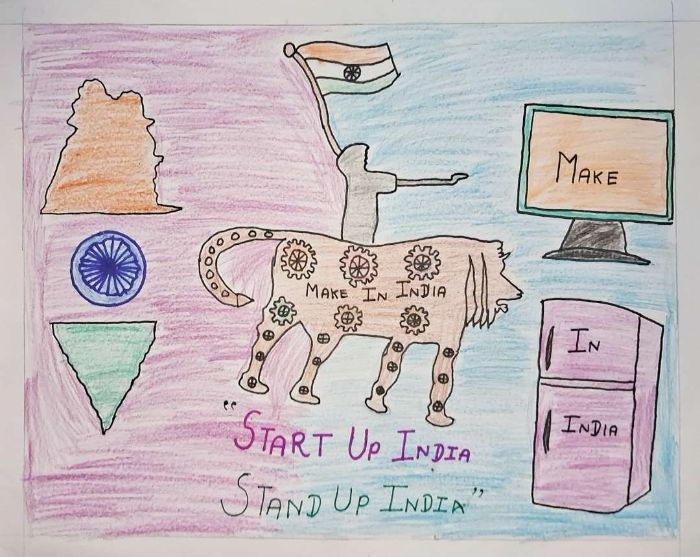 MAKE
MAKE IN INDIA
IN
INDIA
"START UP INDIA
STAND UP INDIA"